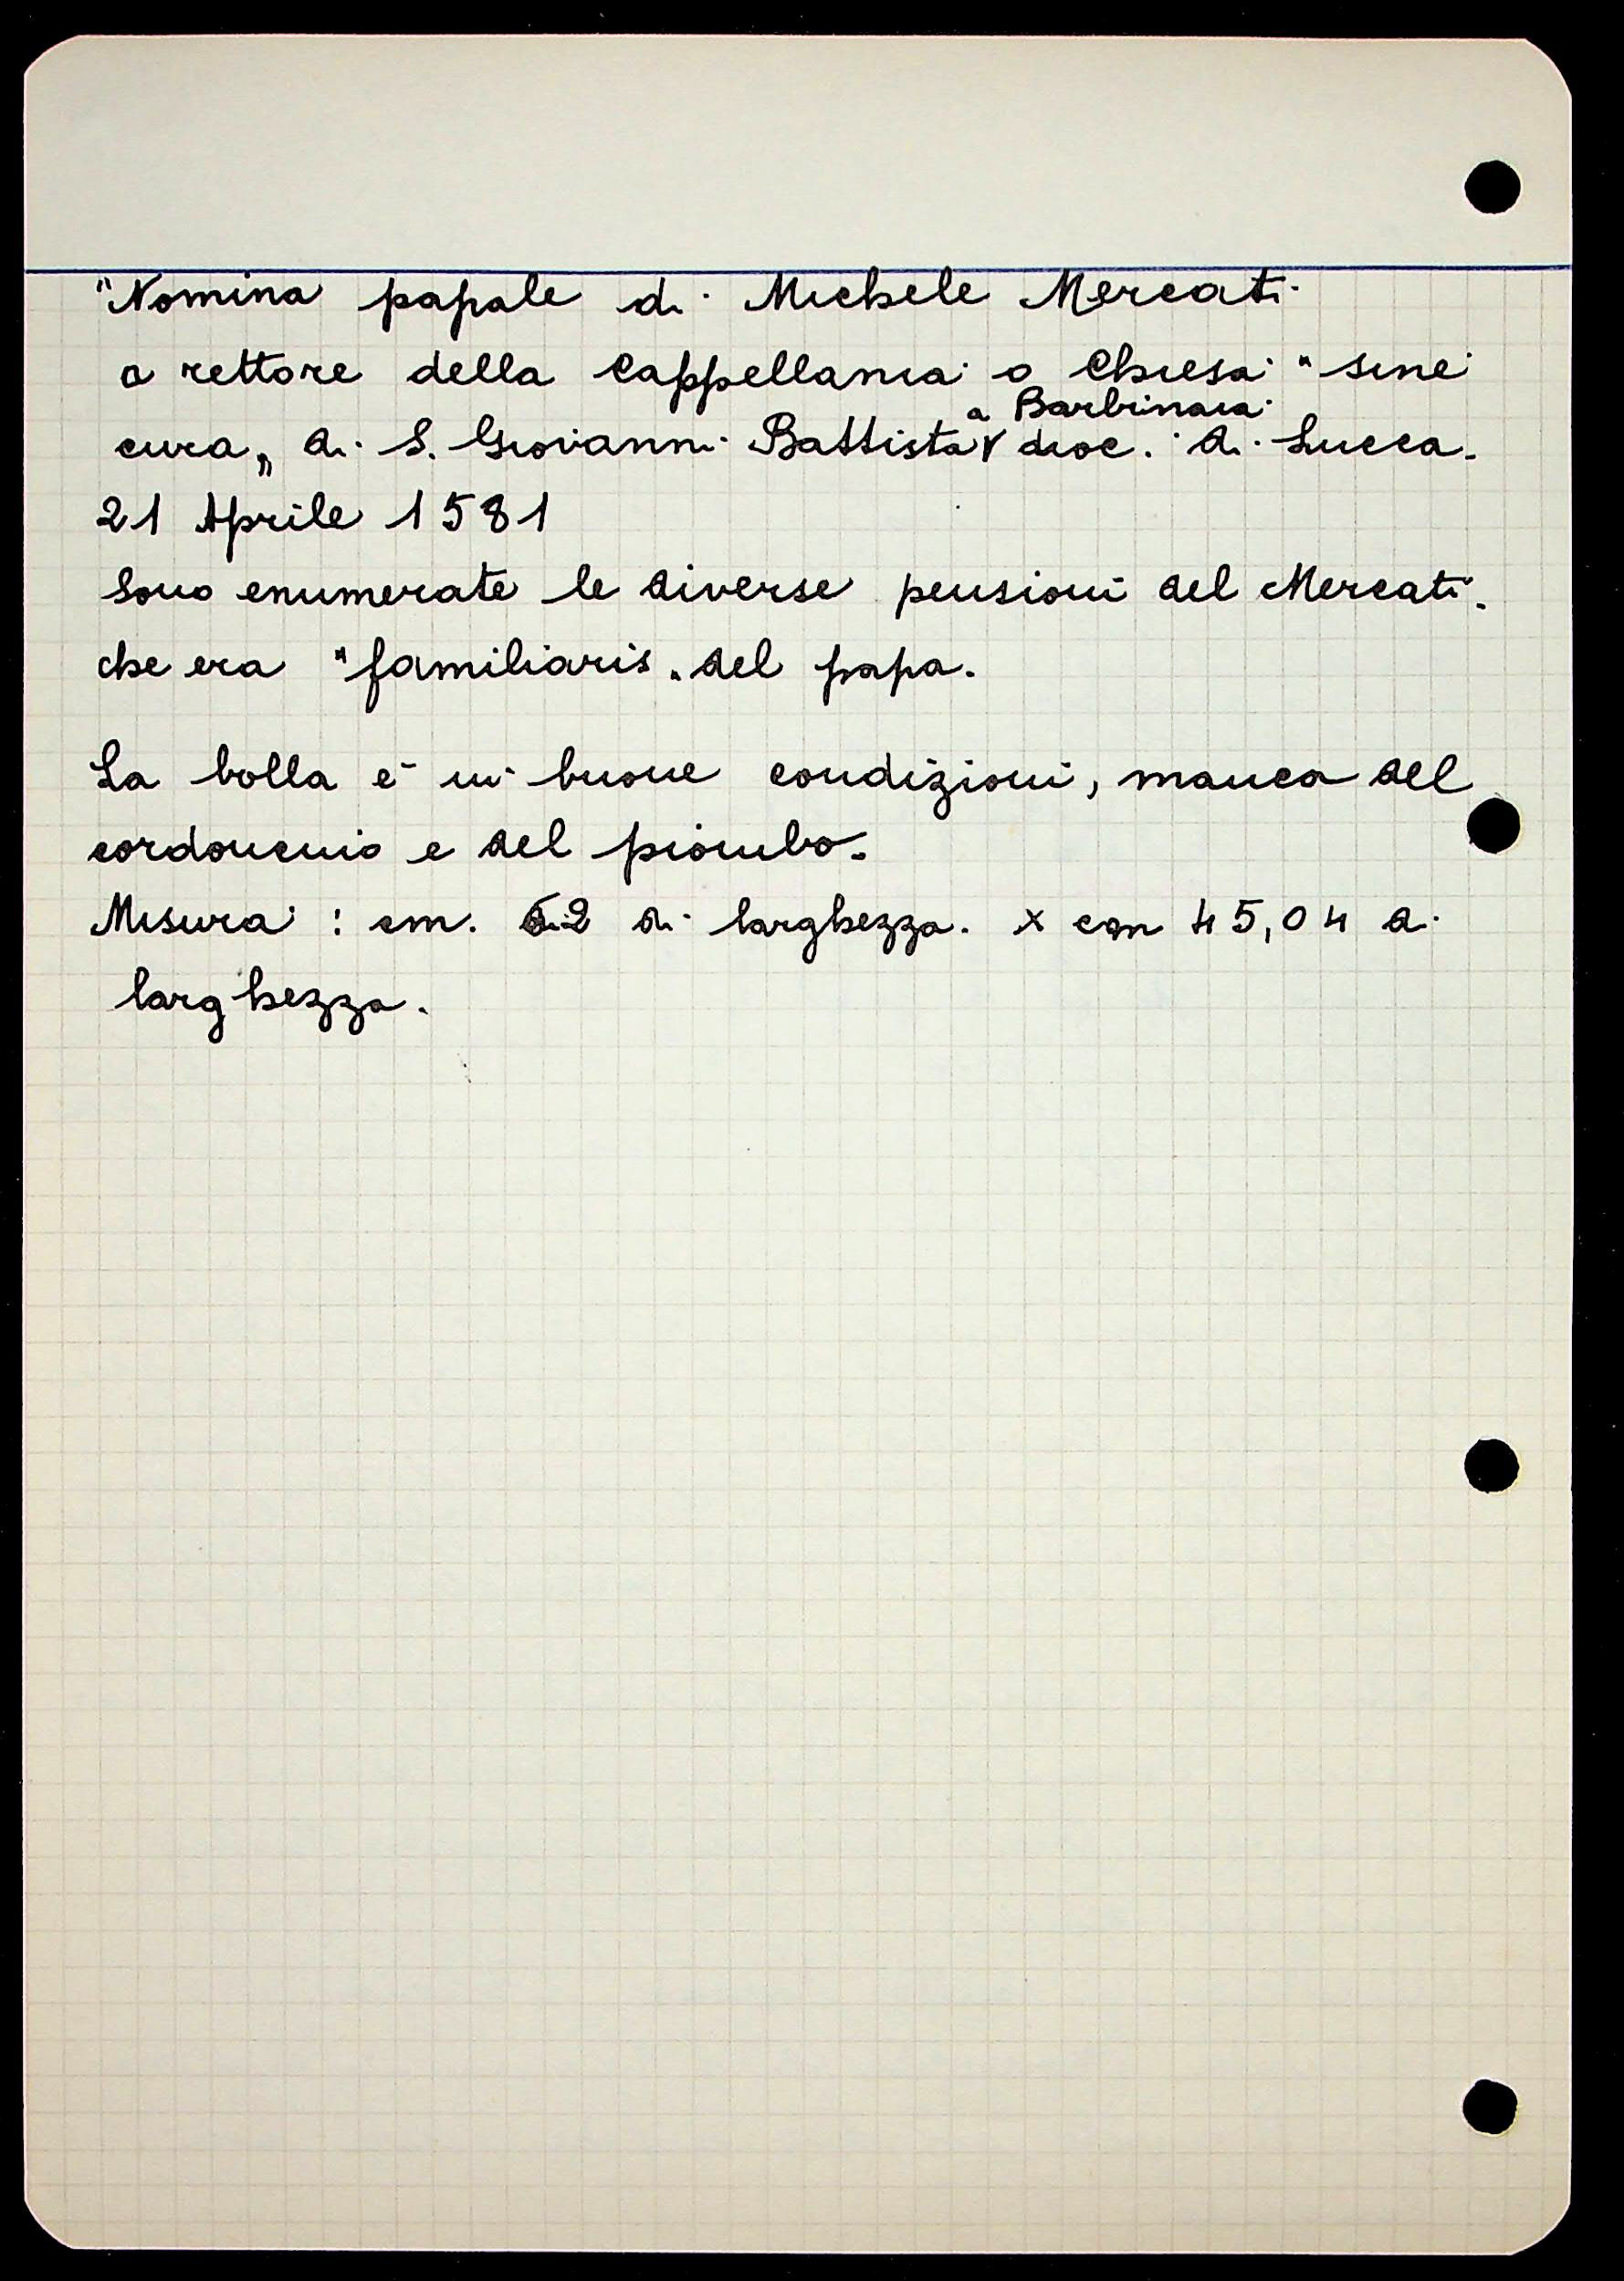 "Nomina papale di Michele Mercati
a rettore della Cappellania o Chiesa "sine
cura" di S. Giovanni Battista a Barbinaia dioc. di Lucca.
21 Aprile 1581
Sono enumerate le diverse pensioni del Mercati.
che era "familiaris" del papa.
La bolla è in buone condizioni, manca del
cordoncino e del piombo.
Misura : cm. di larghezza. x cm 45,04 di
larghezza.